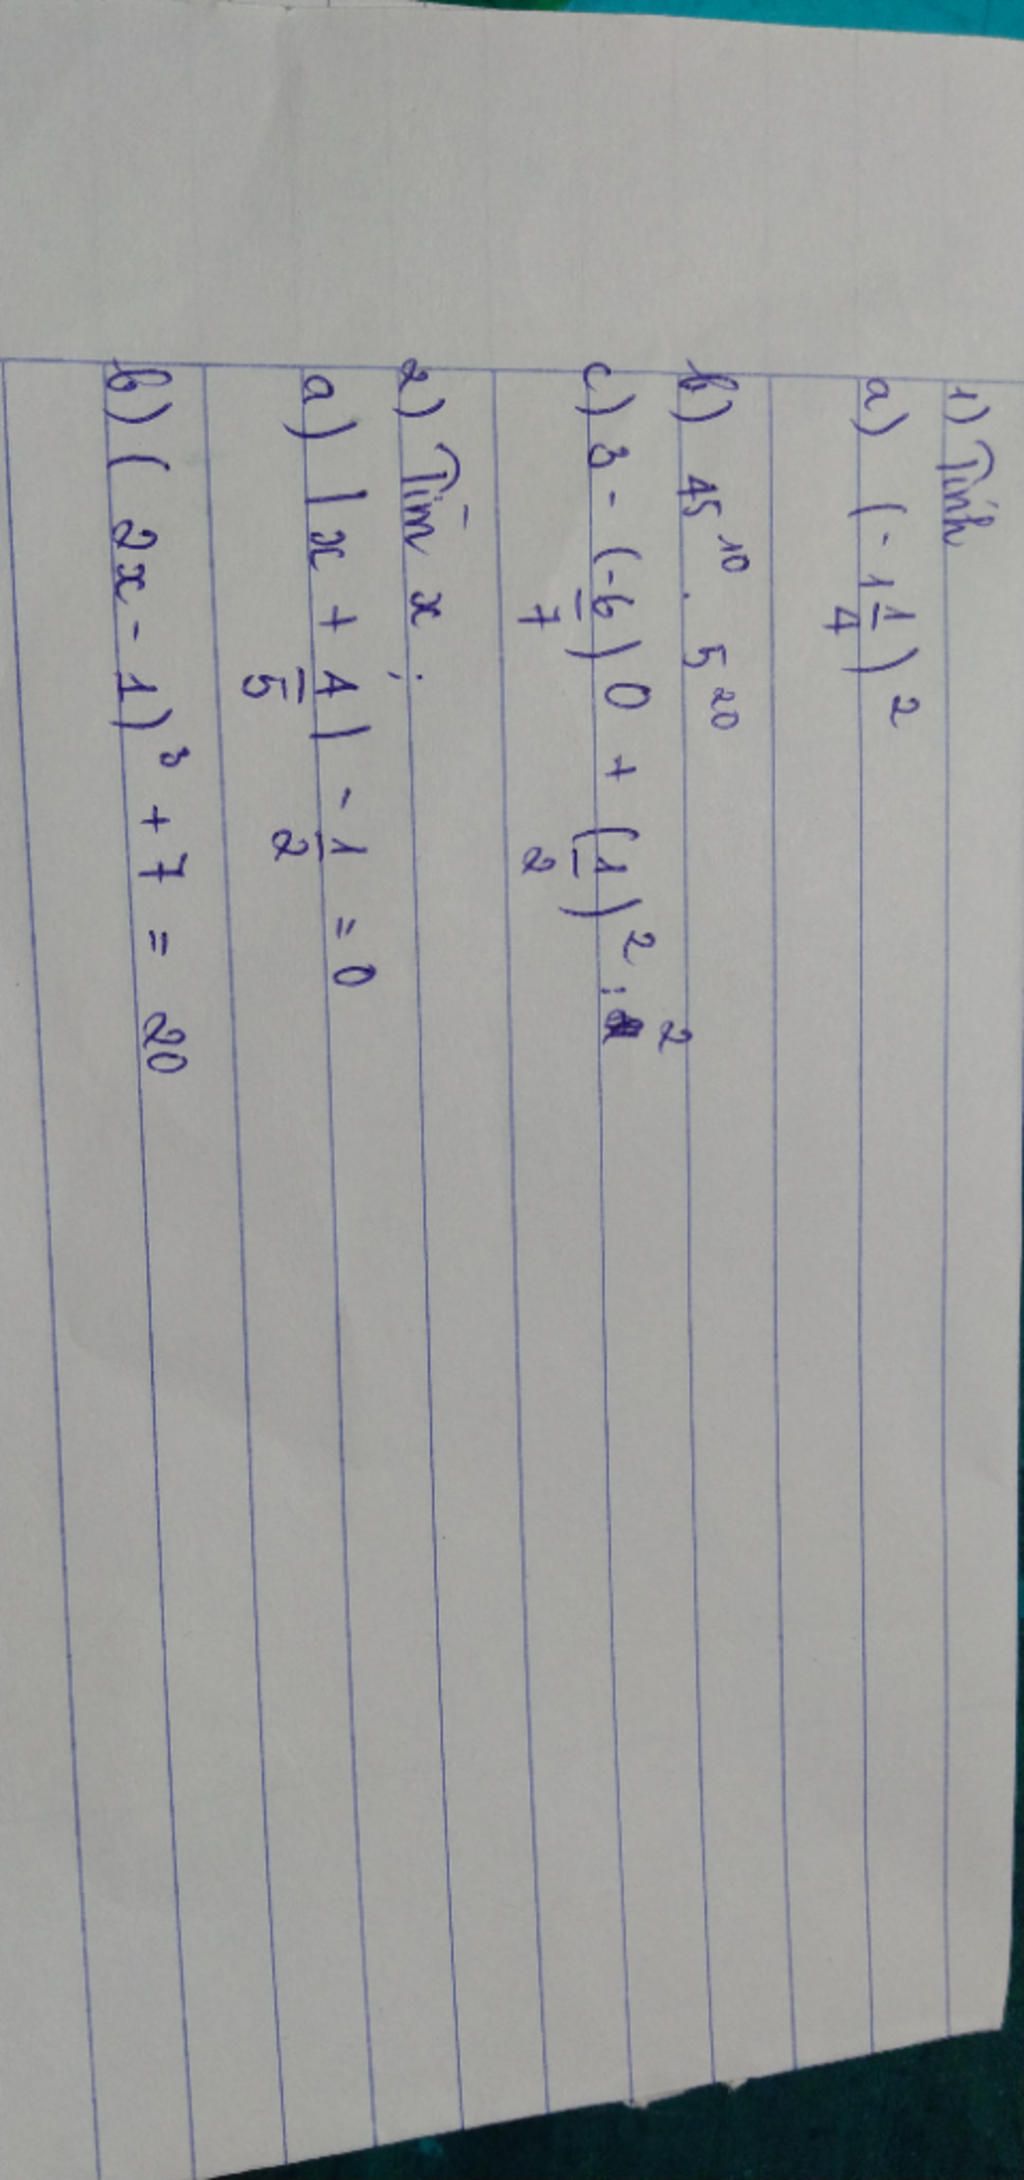 1) Tính
a) (-1 1/4)²
b) 45¹⁰ . 5²⁰
c) 3 - (-6/7)0 + (1/2)² : 2
2) Tìm x :
a) |x + 4/5| - 1/2 = 0
b) (2x - 1)³ + 7 = 20